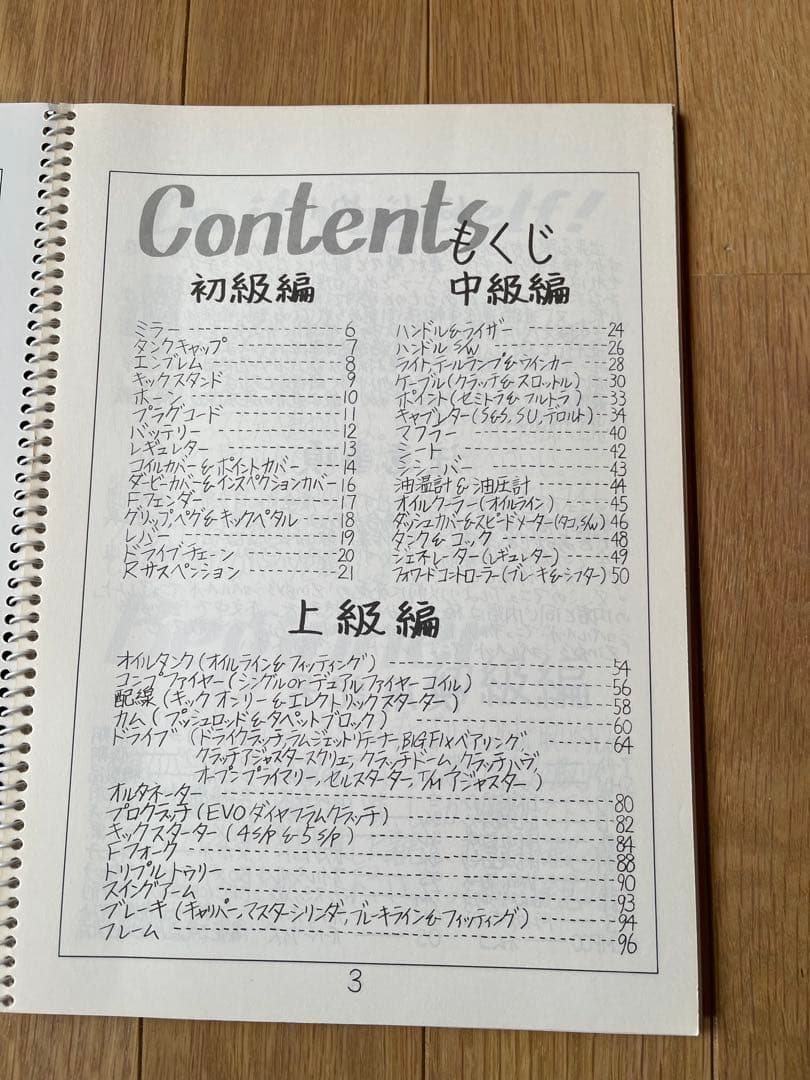 Contents もくじ
初級編
ミラー 6
タンクキャップ 7
エンブレム 8
キックスタンド 9
ホーン 10
プラグコード 11
バッテリー 12
レギュレター 13
コイルカバー&ポイントカバー 14
ダービカバー&インスペクションカバー 16
Fフェンダー 17
グリップ,ペグ&キックペダル 18
レバー 19
ドライブチェーン 20
Rサスペンション 21
中級編
ハンドル&ライザー 24
ハンドルS/W 26
ライト,テールランプ&ウインカー 28
ケーブル(クラッチ&スロットル) 30
ポイント(セミトラ&フルトラ) 33
キャブレター(S&S, SU, デロルト) 34
マフラー 40
シート 42
シシーバー 43
油温計&油圧計 44
オイルクーラー(オイルライン) 45
ダッシュカバー&スピードメーター(タコ,S/W) 46
タンク&コック 48
ジェネレーター(レギュレター) 49
フォワードコントローラー(ブレーキ&シフター) 50
上級編
オイルタンク(オイルライン&フィッティング) 54
コンプファイヤー(シングルorデュアルファイヤーコイル) 56
配線(キックオンリー&エレクトリックスターター) 58
カム(プッシュロッド&タペットブロック) 60
ドライブ(ドライクラッチ,ラムジェットリテーナー,BIG FIXベアリング, 64
クラッチアジャスタースクリュー,クラッチドーム,クラッチハヴ,
オープンプライマリー,セルスターター,T/Mアジャスター)
オルタネーター 80
プロクラッチ(EVOダイヤフラムクラッチ) 82
キックスターター(4s/p&5s/p) 84
Fフォーク 88
トリプルトゥリー 90
スイングアーム 93
ブレーキ(キャリパー,マスターシリンダー,ブレーキライン&フィッティング) 94
フレーム 96
3